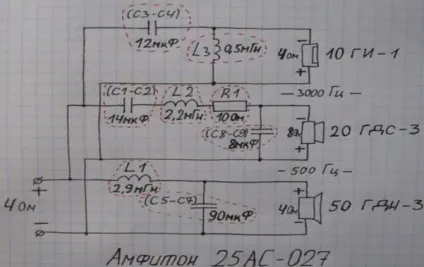 (С3-С4)
12мкФ
L3
0,5мГн
−
4Ом
+
10 ГИ-1
— 3000 Гц —
(С1-С2)
14мкФ
L2
2,2мГн
R1
10Ом
(С8-С9)
8мкФ
−
8Ом
+
20 ГДС-3
— 500 Гц —
L1
2,9мГн
(С5-С7)
90мкФ
+
4Ом
−
50 ГДН-3
+
4Ом
−
Амфитон 25АС-027